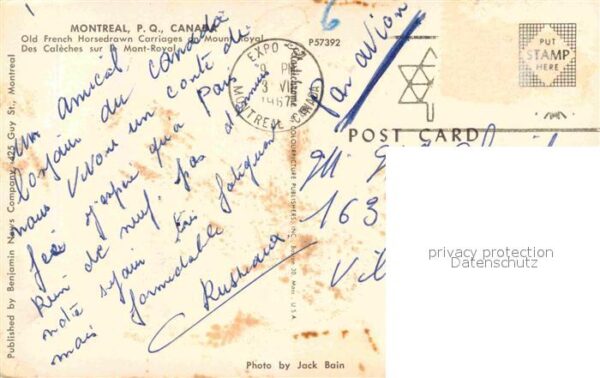 MONTREAL, P. Q., CANADA
Old French Horsedrawn Carriages on Mount Royal
Des Calèches sur le Mont-Royal
P57392
6
Par avion
PUT
STAMP
HERE
EXPO
9 PM
3 VII
1967
MONTREAL CANADA
POST CARD
un amical
bonjour du Canada
nous vivons un conte de
fée j'espère qu'à Paris
Rien de neuf. pas d'ennuis
notre séjour très fatiguant
mais formidable
M.
163
Published by Benjamin News Company, 425 Guy St., Montreal
Photo by Jack Bain
privacy protection
Datenschutz